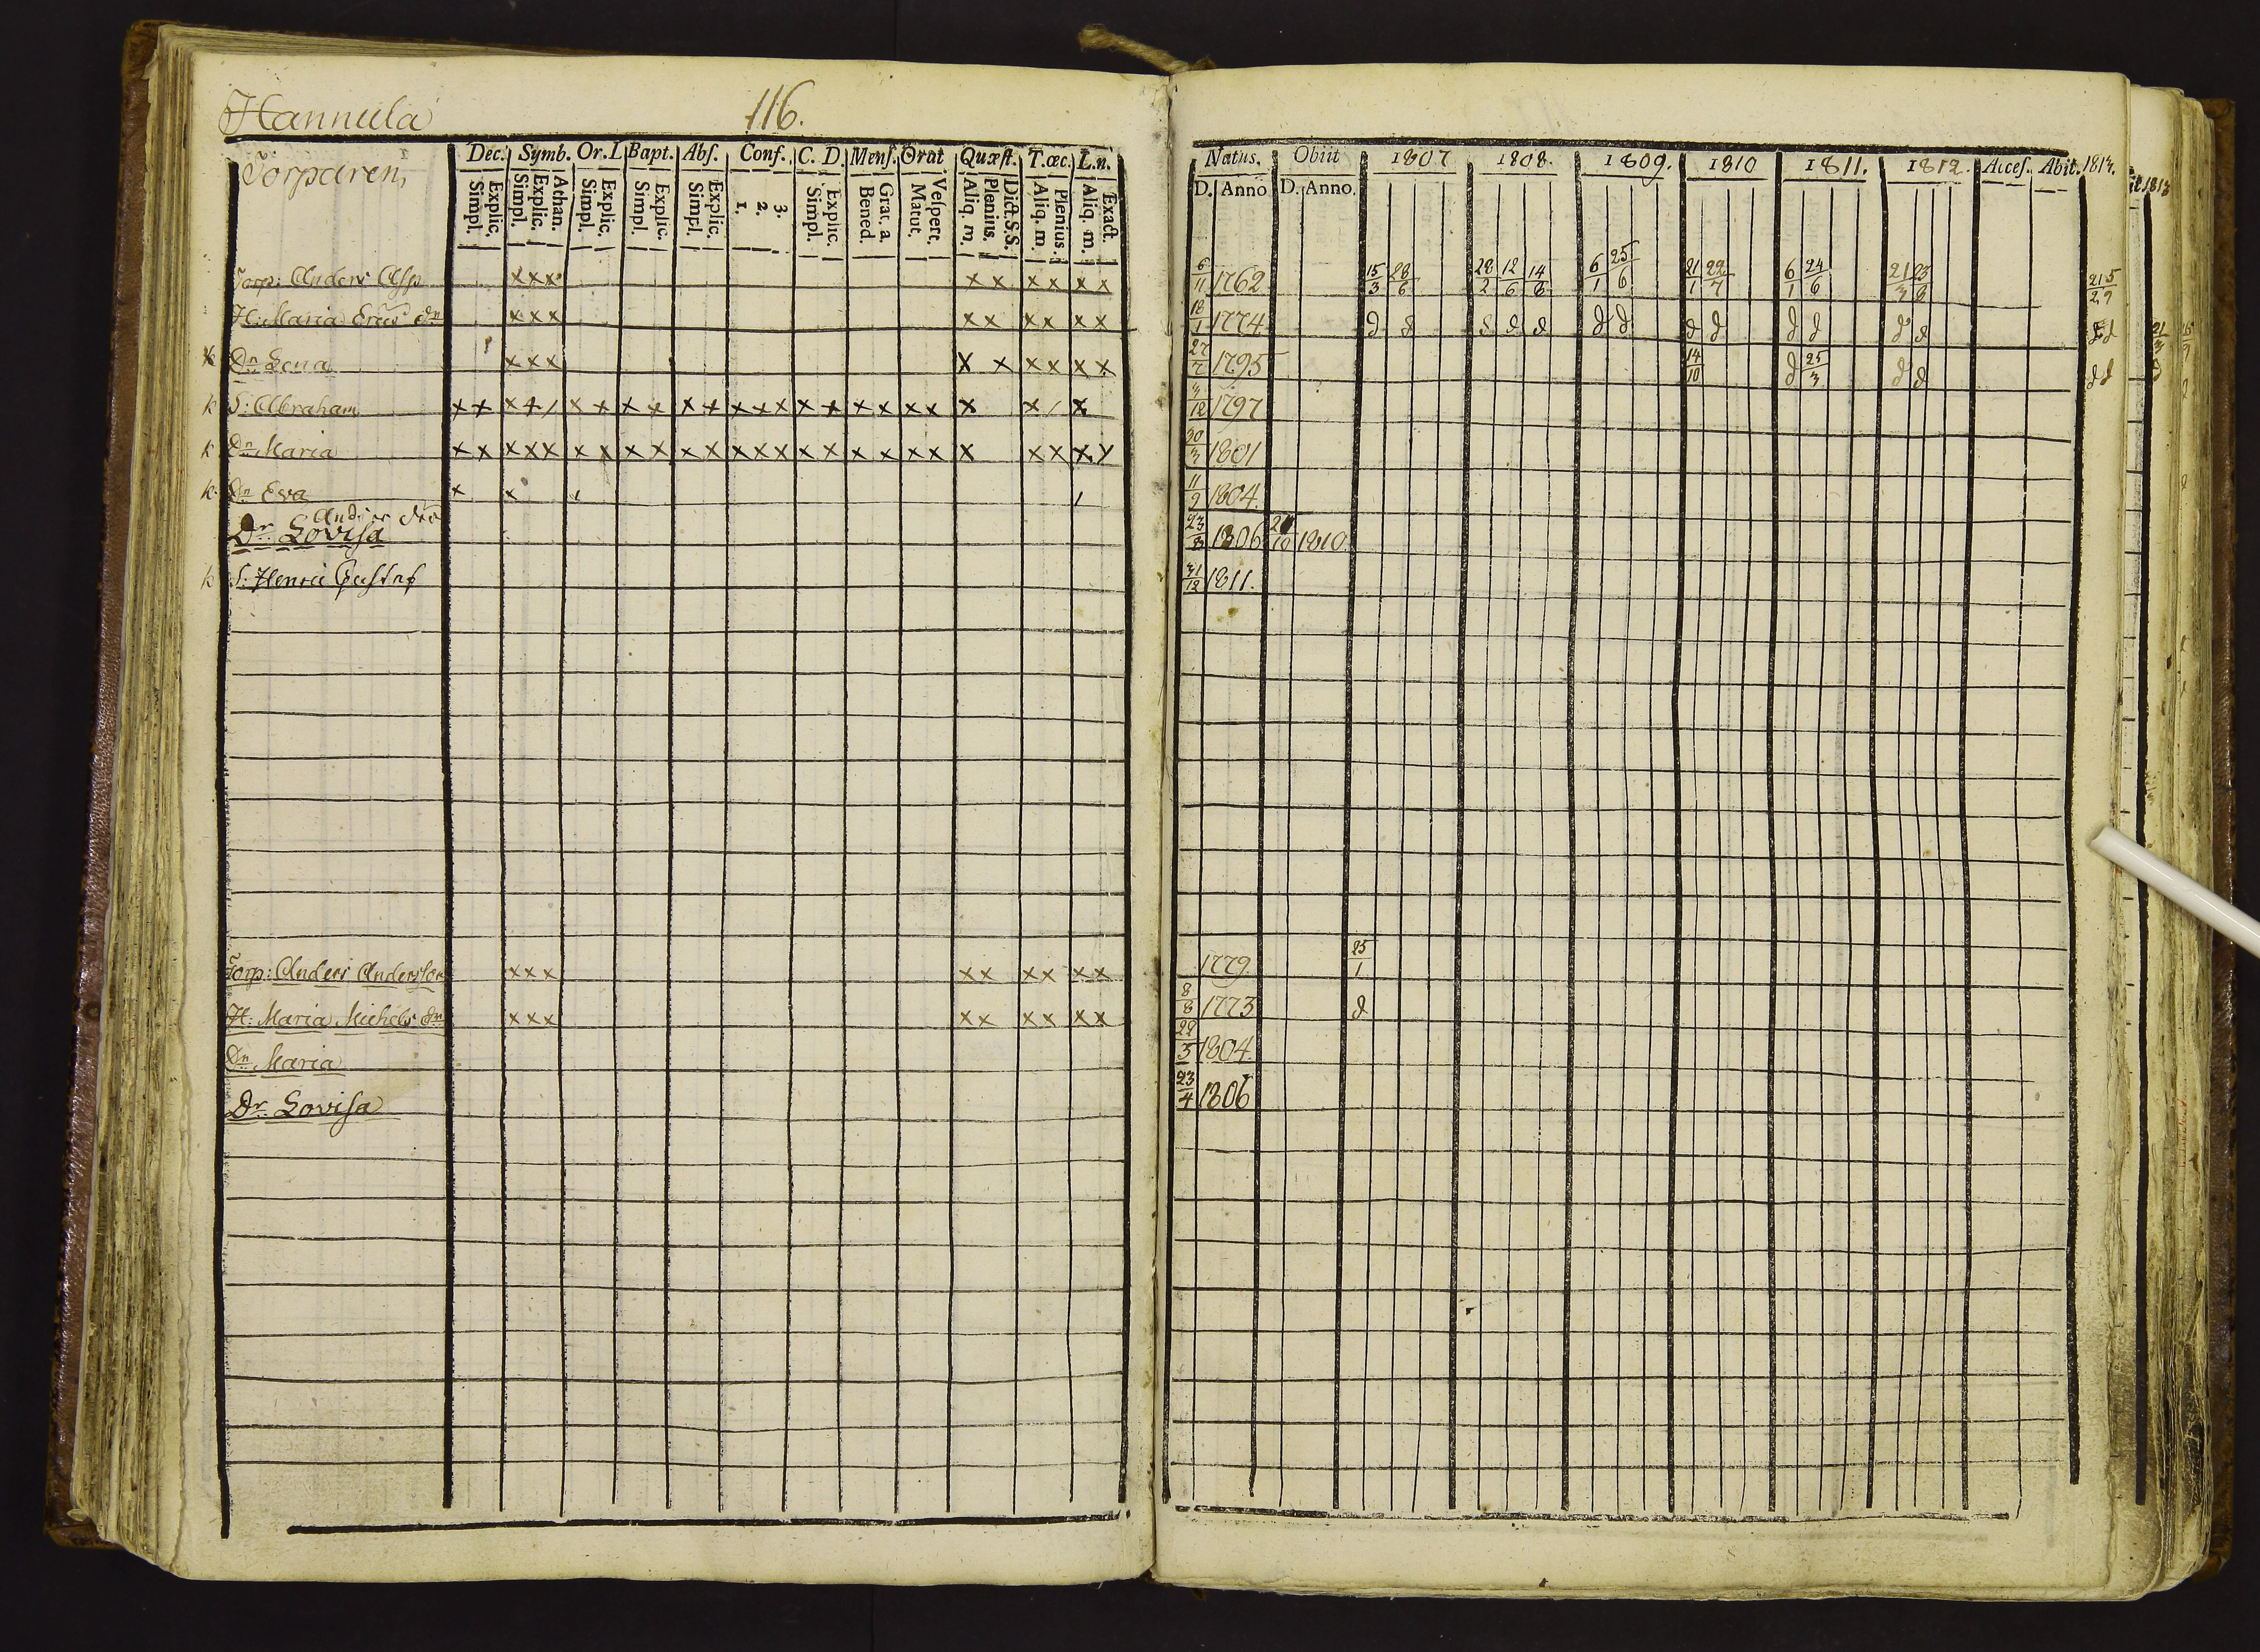 Hannula 116.
Torparen,
Dec. Symb. Or. L Bapt. Abs. Conf. C. D. Mens. Orat Quæst. T. œc. L. n.
Explic. Simpl. Athan. Explic. Simpl. Explic. Simpl. Explic. Simpl. Explic. Simpl. 3. 2. 1. Explic. Simpl. Grac. a. Bened. Vespert. Matut. Dict. S.S. Plenius. Aliq. m. Plenius. Aliq. m. Exact. Aliq. m.
Natus. Obiit 1807 1808. 1809. 1810 1811. 1812. Acces. Abit. 1813.
D. Anno D. Anno.
Torp: Anders Asp xxx x x x x x x 6/11 1762 15/3 28/6 28/2 12/6 14/8 6/1 25/6 21/1 22/7 6/1 24/6 21/3 23/8 21/2 5/9
H: Maria Erics dr xxx x x x x x x 18/1 1774 d d d d d d d d d d d d d d d
Dr Lena xxx x x x x x x 27/7 1795 14/10 d 25/3 d d d d
k S: Abraham x x x x / x x x x x x x x x x x x x x x x x / x 4/12 1797
k Dr Maria x x x x x x x x x x x x x x x x x x x x x x x x x 30/3 1801
k Dr Eva x x / / 11/9 1804.
Dr Lovisa 23/3 1806 10 1810
k S: Henric Gustaf 31/12 1811.
Torp: Anders Andersson xxx x x x x x x 1779. 25/1
H: Maria Michels dr xxx x x x x x x 8/8 1773 d
Dr Maria 22/5 1804.
Dr Lovisa 23/4 1806